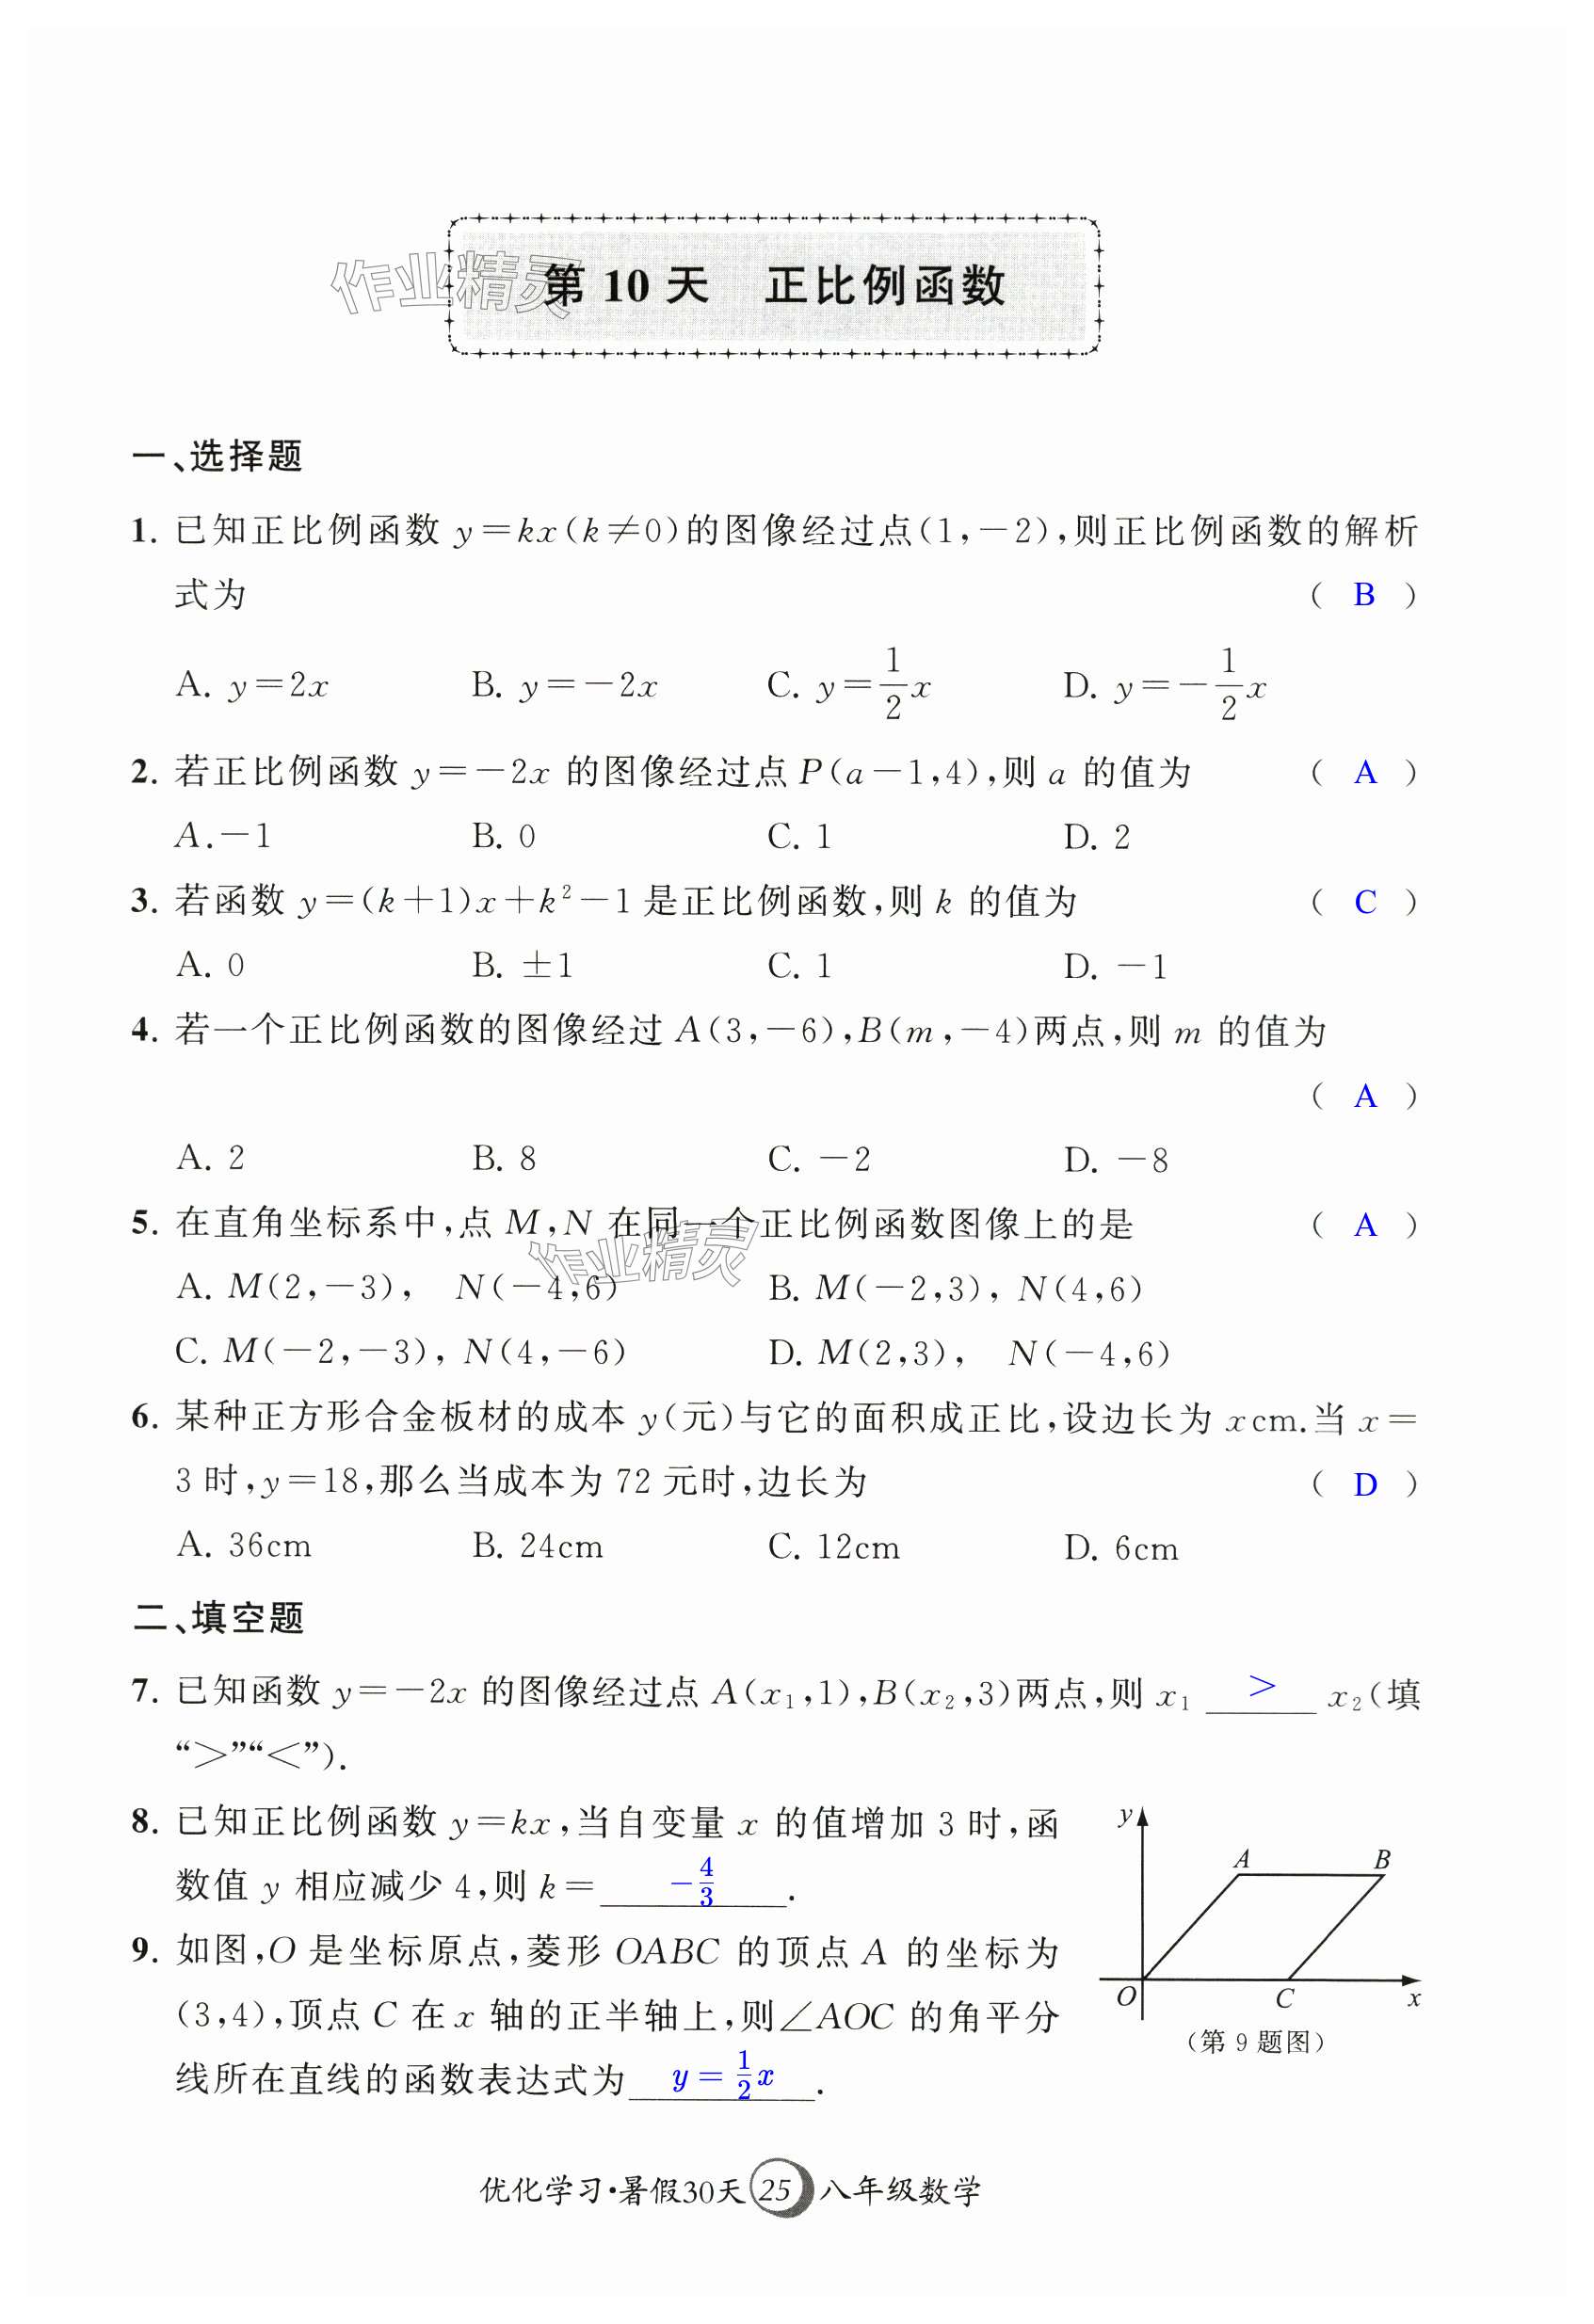 作业精灵
第 10 天 正比例函数
一、选择题
1. 已知正比例函数 y=kx(k≠0)的图像经过点(1,-2),则正比例函数的解析
式为 ( B )
A. y=2x B. y=-2x C. y=\frac{1}{2}x D. y=-\frac{1}{2}x
2. 若正比例函数 y=-2x 的图像经过点 P(a-1,4),则 a 的值为 ( A )
A.-1 B. 0 C. 1 D. 2
3. 若函数 y=(k+1)x+k²-1 是正比例函数,则 k 的值为 ( C )
A. 0 B. ±1 C. 1 D. -1
4. 若一个正比例函数的图像经过 A(3,-6),B(m,-4)两点,则 m 的值为
( A )
A. 2 B. 8 C. -2 D. -8
5. 在直角坐标系中,点 M,N 在同一个正比例函数图像上的是 ( A )
作业精灵
A. M(2,-3), N(-4,6) B. M(-2,3), N(4,6)
C. M(-2,-3), N(4,-6) D. M(2,3), N(-4,6)
6. 某种正方形合金板材的成本 y(元)与它的面积成正比,设边长为 xcm.当 x=
3 时,y=18,那么当成本为 72 元时,边长为 ( D )
A. 36cm B. 24cm C. 12cm D. 6cm
二、填空题
7. 已知函数 y=-2x 的图像经过点 A(x₁,1),B(x₂,3)两点,则 x₁ > x₂(填
“>”“<”).
8. 已知正比例函数 y=kx,当自变量 x 的值增加 3 时,函
数值 y 相应减少 4,则 k= -\frac{4}{3} .
9. 如图,O 是坐标原点,菱形 OABC 的顶点 A 的坐标为
(3,4),顶点 C 在 x 轴的正半轴上,则∠AOC 的角平分
线所在直线的函数表达式为 y=\frac{1}{2}x .
y
A B
O C x
(第 9 题图)
优化学习·暑假30天 25 八年级数学